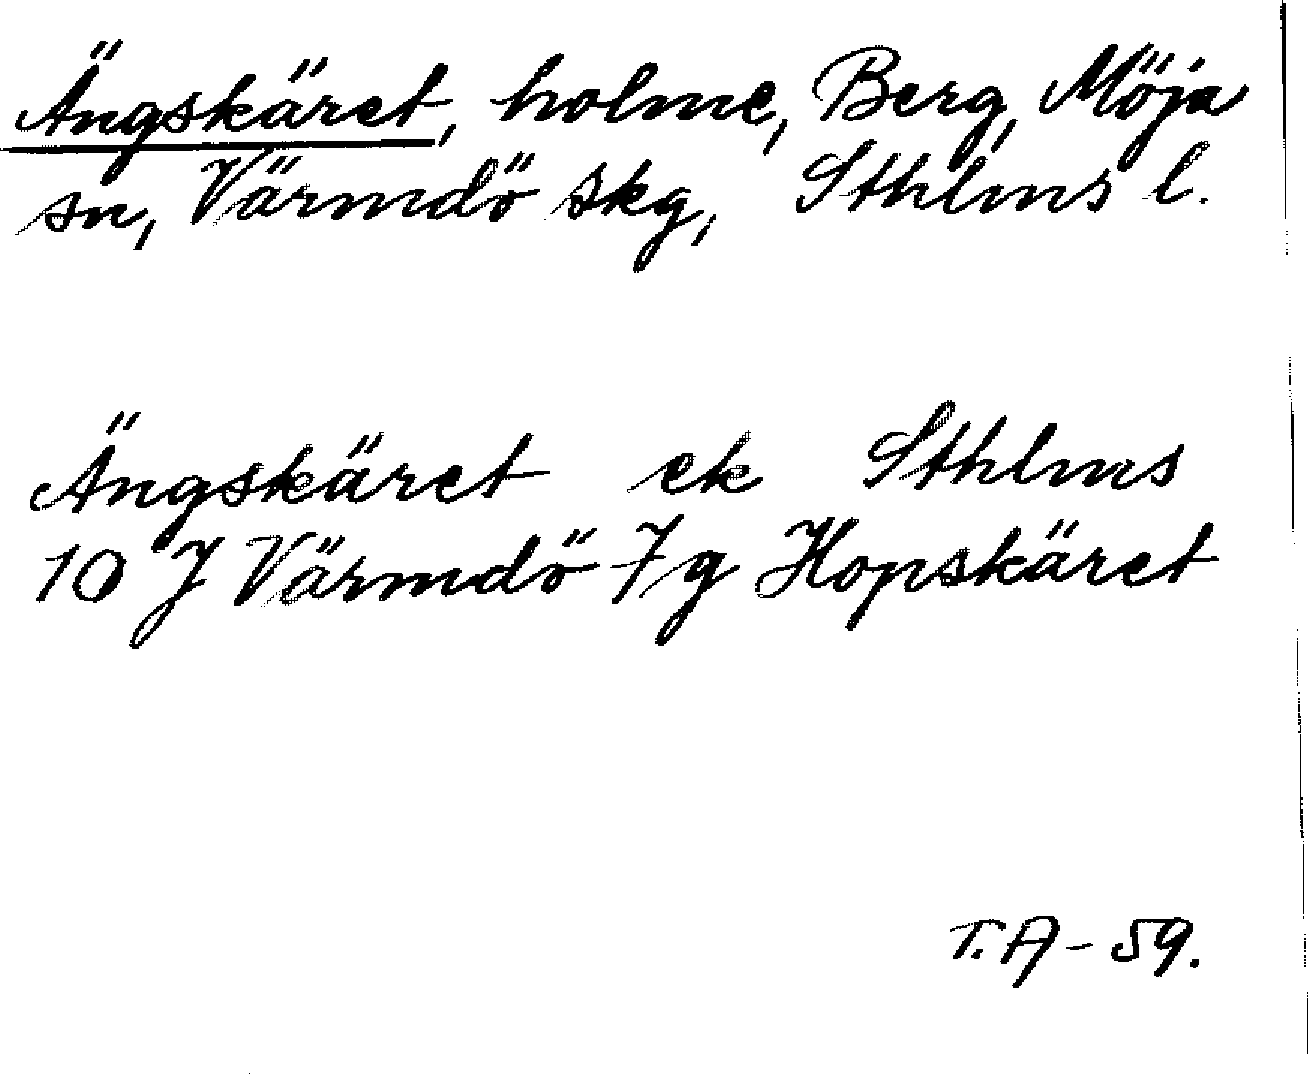 Ängskäret, holme, Berg, Möja
sn, Värmdö skg, Sthlms l.
Ängskäret ek Sthlms
10 J Värmdö 7g Hopskäret
T.A-59.